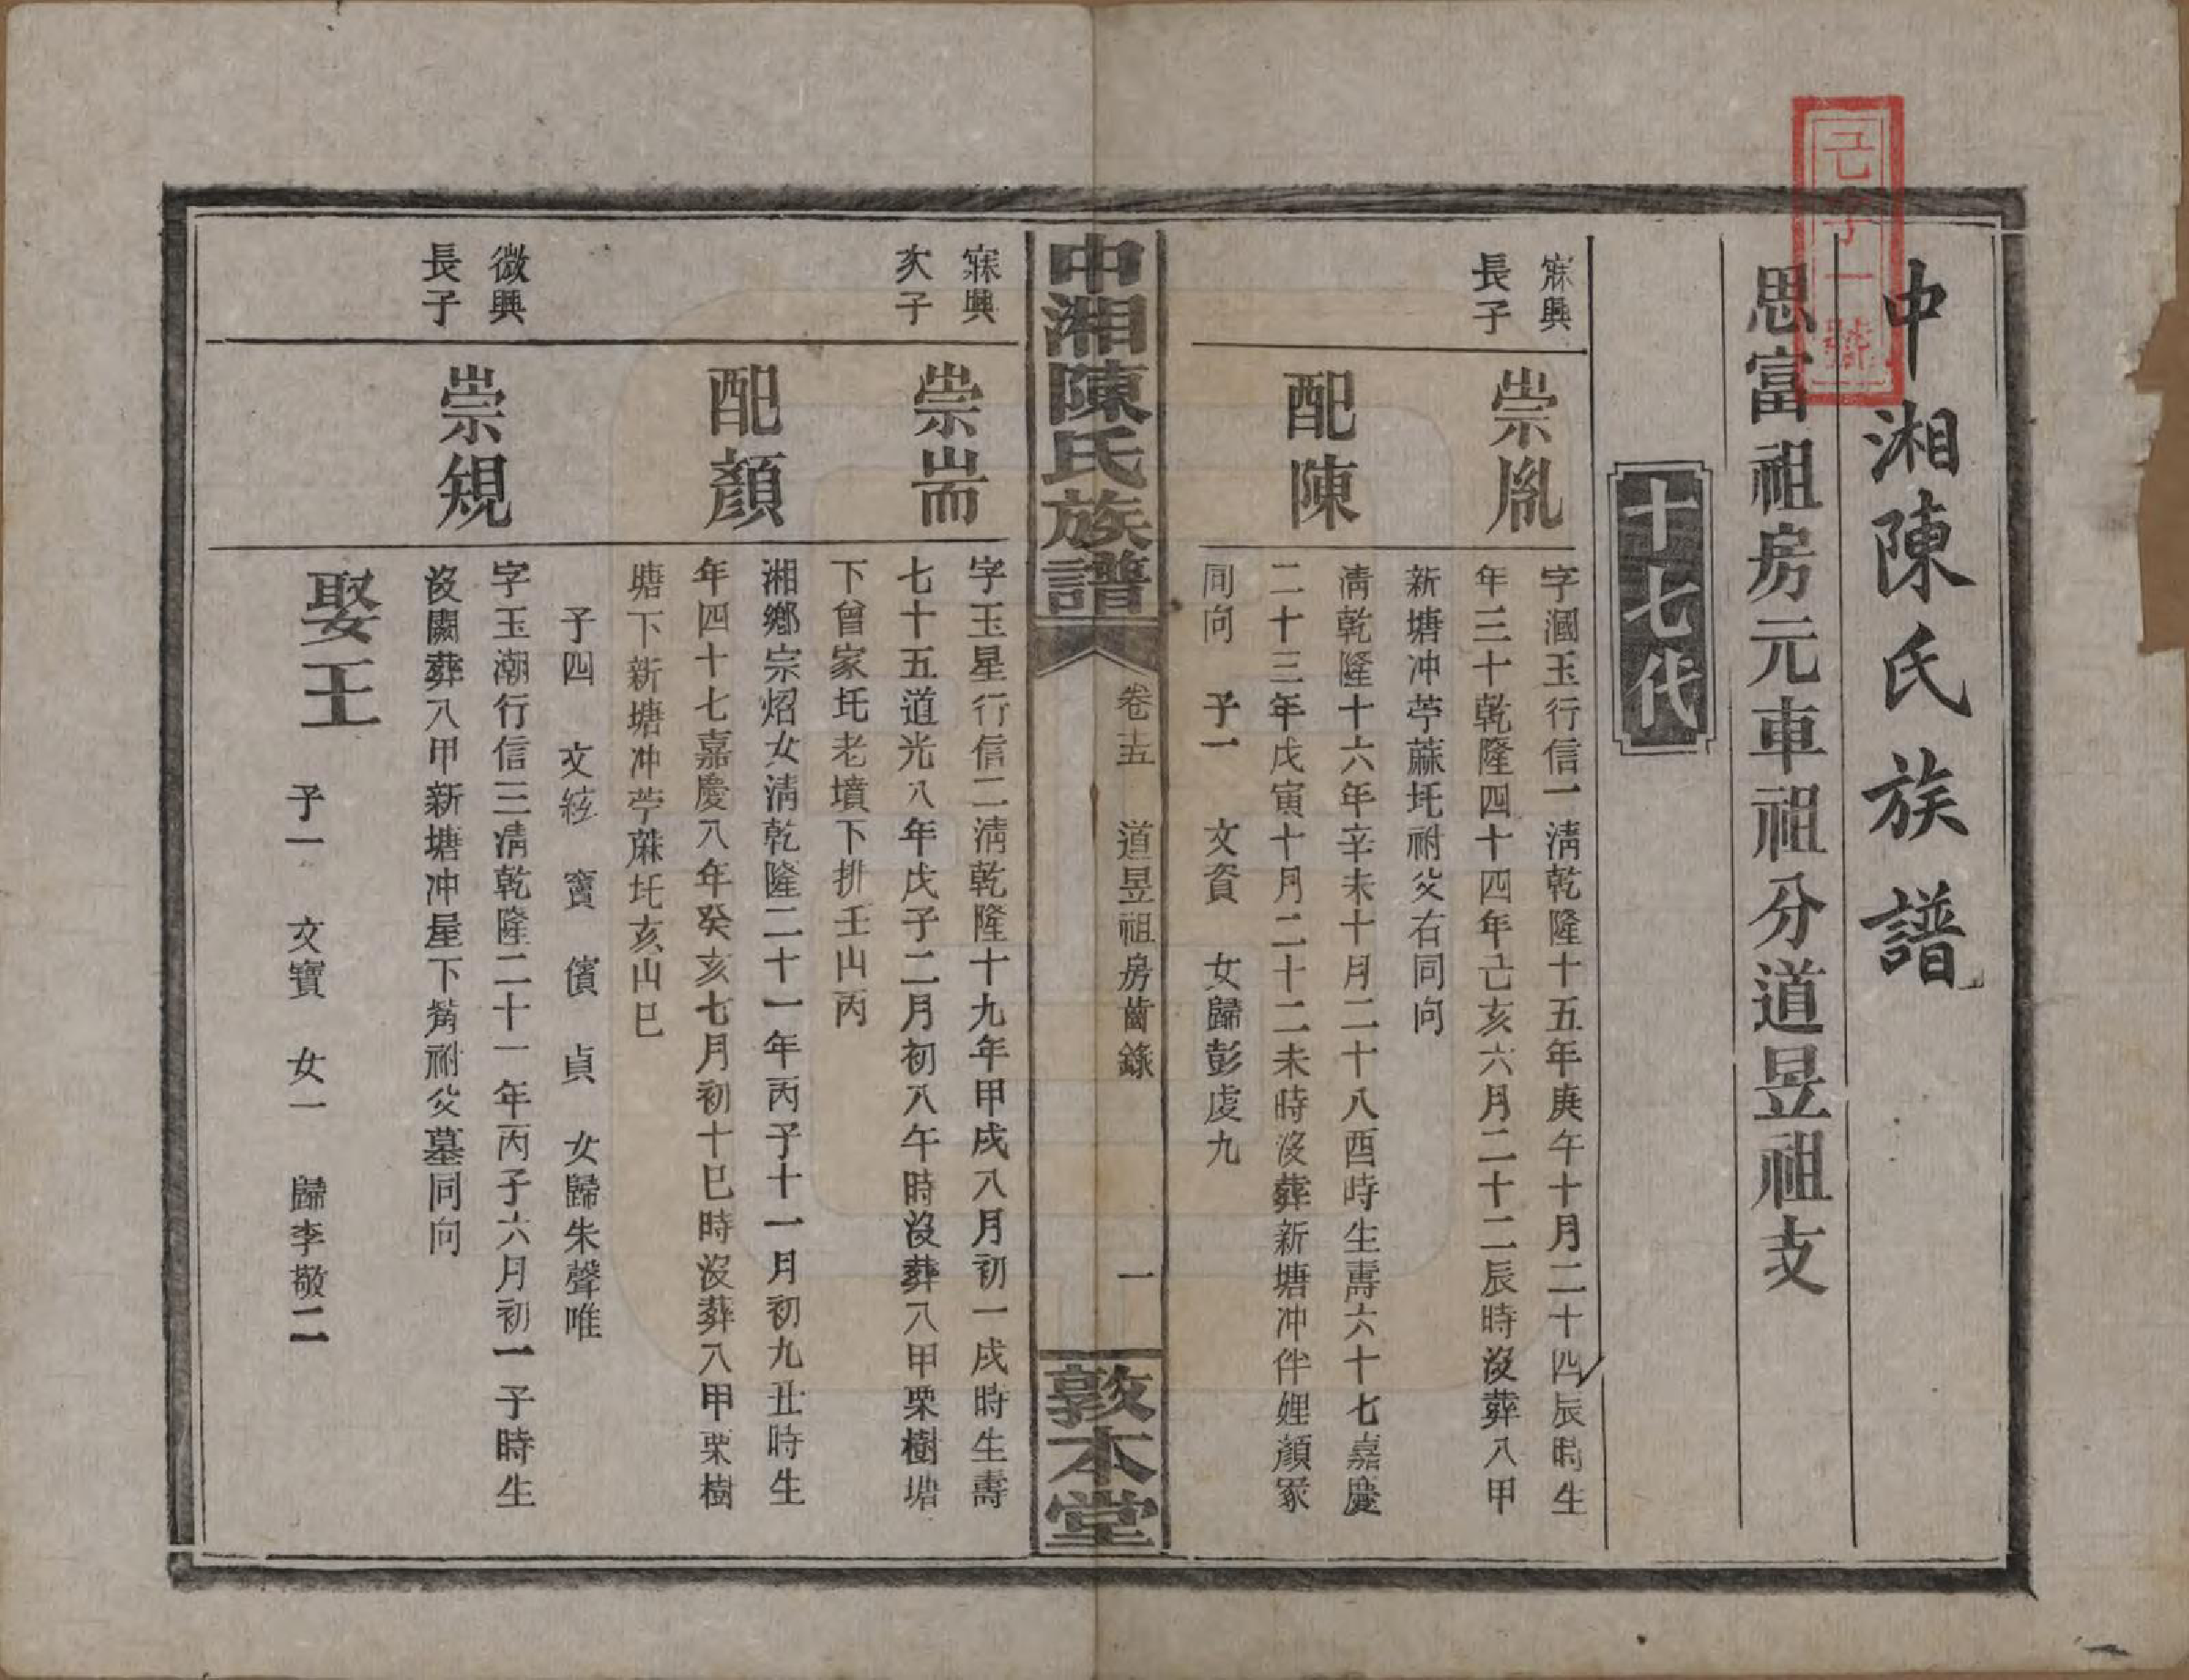 己字一號
中湘陳氏族譜
思富祖房元車祖分道昱祖支
十七代
寐興
長子
崇胤
字漍玉行信一淸乾隆十五年庚午十月二十四辰時生
年三十乾隆四十四年己亥六月二十二辰時沒葬八甲
新塘冲苧蔴圫祔父右同向
配陳
淸乾隆十六年辛未十月二十八酉時生壽六十七嘉慶
二十三年戊寅十月二十二未時沒葬新塘冲伴娌顏冢
同向 子一 文資 女歸彭虔九
中湘陳氏族譜 卷十五 道昱祖房齒錄 一 敦本堂
寐興
次子
崇耑
字玉星行信二淸乾隆十九年甲戌八月初一戌時生壽
七十五道光八年戊子二月初八午時沒葬八甲栗樹塘
下曾家圫老墳下排壬山丙
配顏
湘鄉宗炤女淸乾隆二十一年丙子十一月初九丑時生
年四十七嘉慶八年癸亥七月初十巳時沒葬八甲栗樹
塘下新塘冲苧蔴圫亥山巳
子四 文絃 寶 儐 貞 女歸朱聲唯
微興
長子
崇規
字玉潮行信三淸乾隆二十一年丙子六月初一子時生
沒闕葬八甲新塘冲屋下觜祔父墓同向
娶王
子一 文寶 女一 歸李敬二